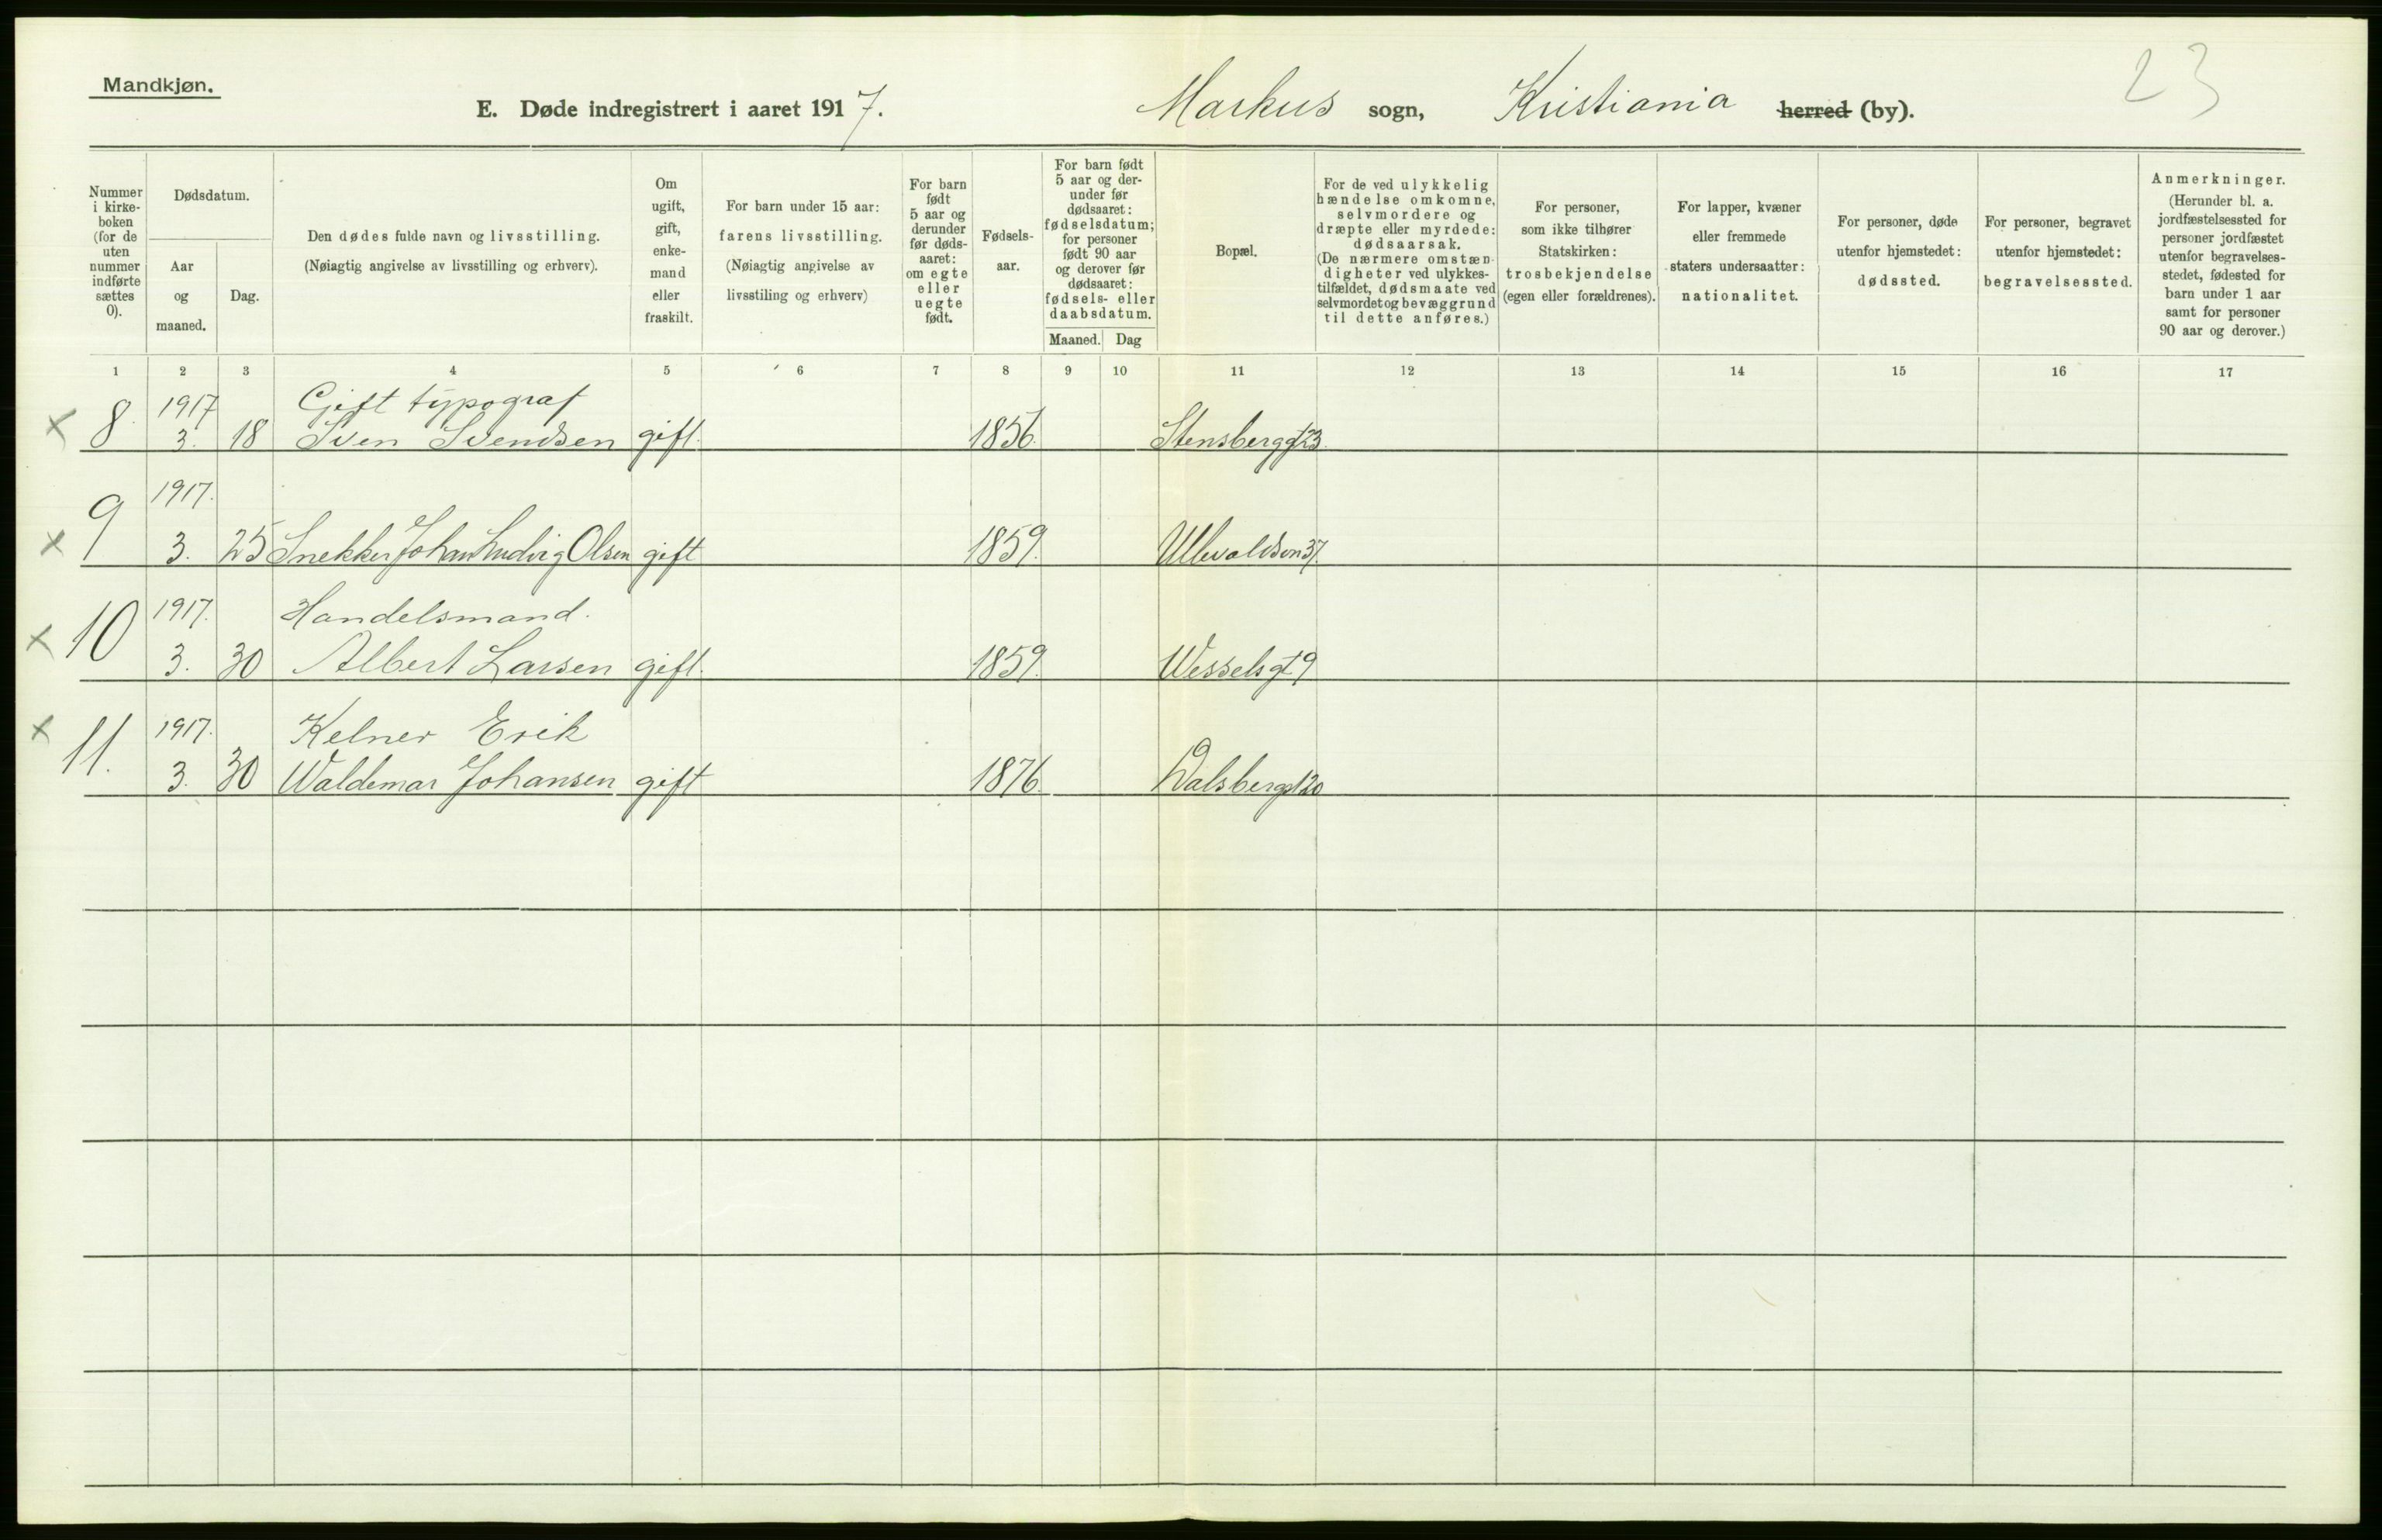 Mandkjøn.
E. Døde indregistrert i aaret 1917. Markus sogn, Kristiania herred (by). 23
Nummer i kirke- boken (for de uten nummer indførte sættes 0).
Dødsdatum.
Aar og maaned.
Dag.
Den dødes fulde navn og livsstilling.
(Nøiagtig angivelse av livsstilling og erhverv).
Om ugift, gift, enke- mand eller fraskilt.
For barn under 15 aar:
farens livsstilling.
(Nøiagtig angivelse av
livsstiling og erhverv)
For barn født 5 aar og derunder før døds- aaret: om egte eller uegte født.
Fødsels- aar.
For barn født 5 aar og der- under før dødsaaret: fødselsdatum; for personer født 90 aar og derover før dødsaaret: fødsels- eller daabsdatum.
Maaned. Dag
Bopæl.
For de ved ulykkelig hændelse omkomne, selvmordere og dræpte eller myrdede: dødsaarsak.
(De nærmere omstæn- digheter ved ulykkes- tilfældet, dødsmaate ved selvmordet og bevæggrund til dette anføres.)
For personer, som ikke tilhører Statskirken: trosbekjendelse (egen eller forældrenes).
For lapper, kvæner eller fremmede staters undersaatter: nationalitet.
For personer, døde utenfor hjemstedet: dødssted.
For personer, begravet utenfor hjemstedet: begravelsessted.
Anmerkninger.
(Herunder bl. a. jordfæstelsessted for personer jordfæstet utenfor begravelses- stedet, fødested for barn under 1 aar samt for personer 90 aar og derover.)
1 2 3 4 5 6 7 8 9 10 11 12 13 14 15 16 17
1917 Gift typograf
x 8. 3. 18 Sven Svendsen gift. 1856. Stensberggt 23.
1917.
x 9 3. 25 Snekker Johan Ludvig Olsen gift 1859. Ullevaldsvn 37.
1917. Handelsmand.
x 10 3. 30 Albert Larsen gift. 1859. Wesselsgt 9
1917. Kelner Erik
x 11. 3. 30 Waldemar Johansen gift 1876. Dalsbergst 20